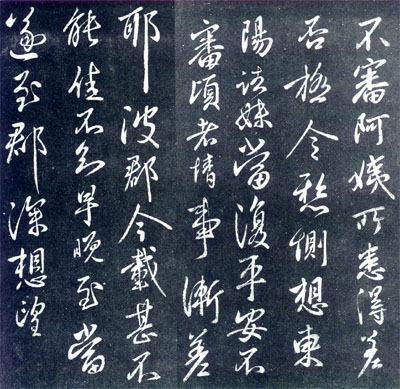 不審阿姨所患得差
否極令愁惻想東
陽諸妹當復平安不
審頃者情事漸差
耶彼郡今載甚不
能佳不知早晚至當
遂至郡深想望